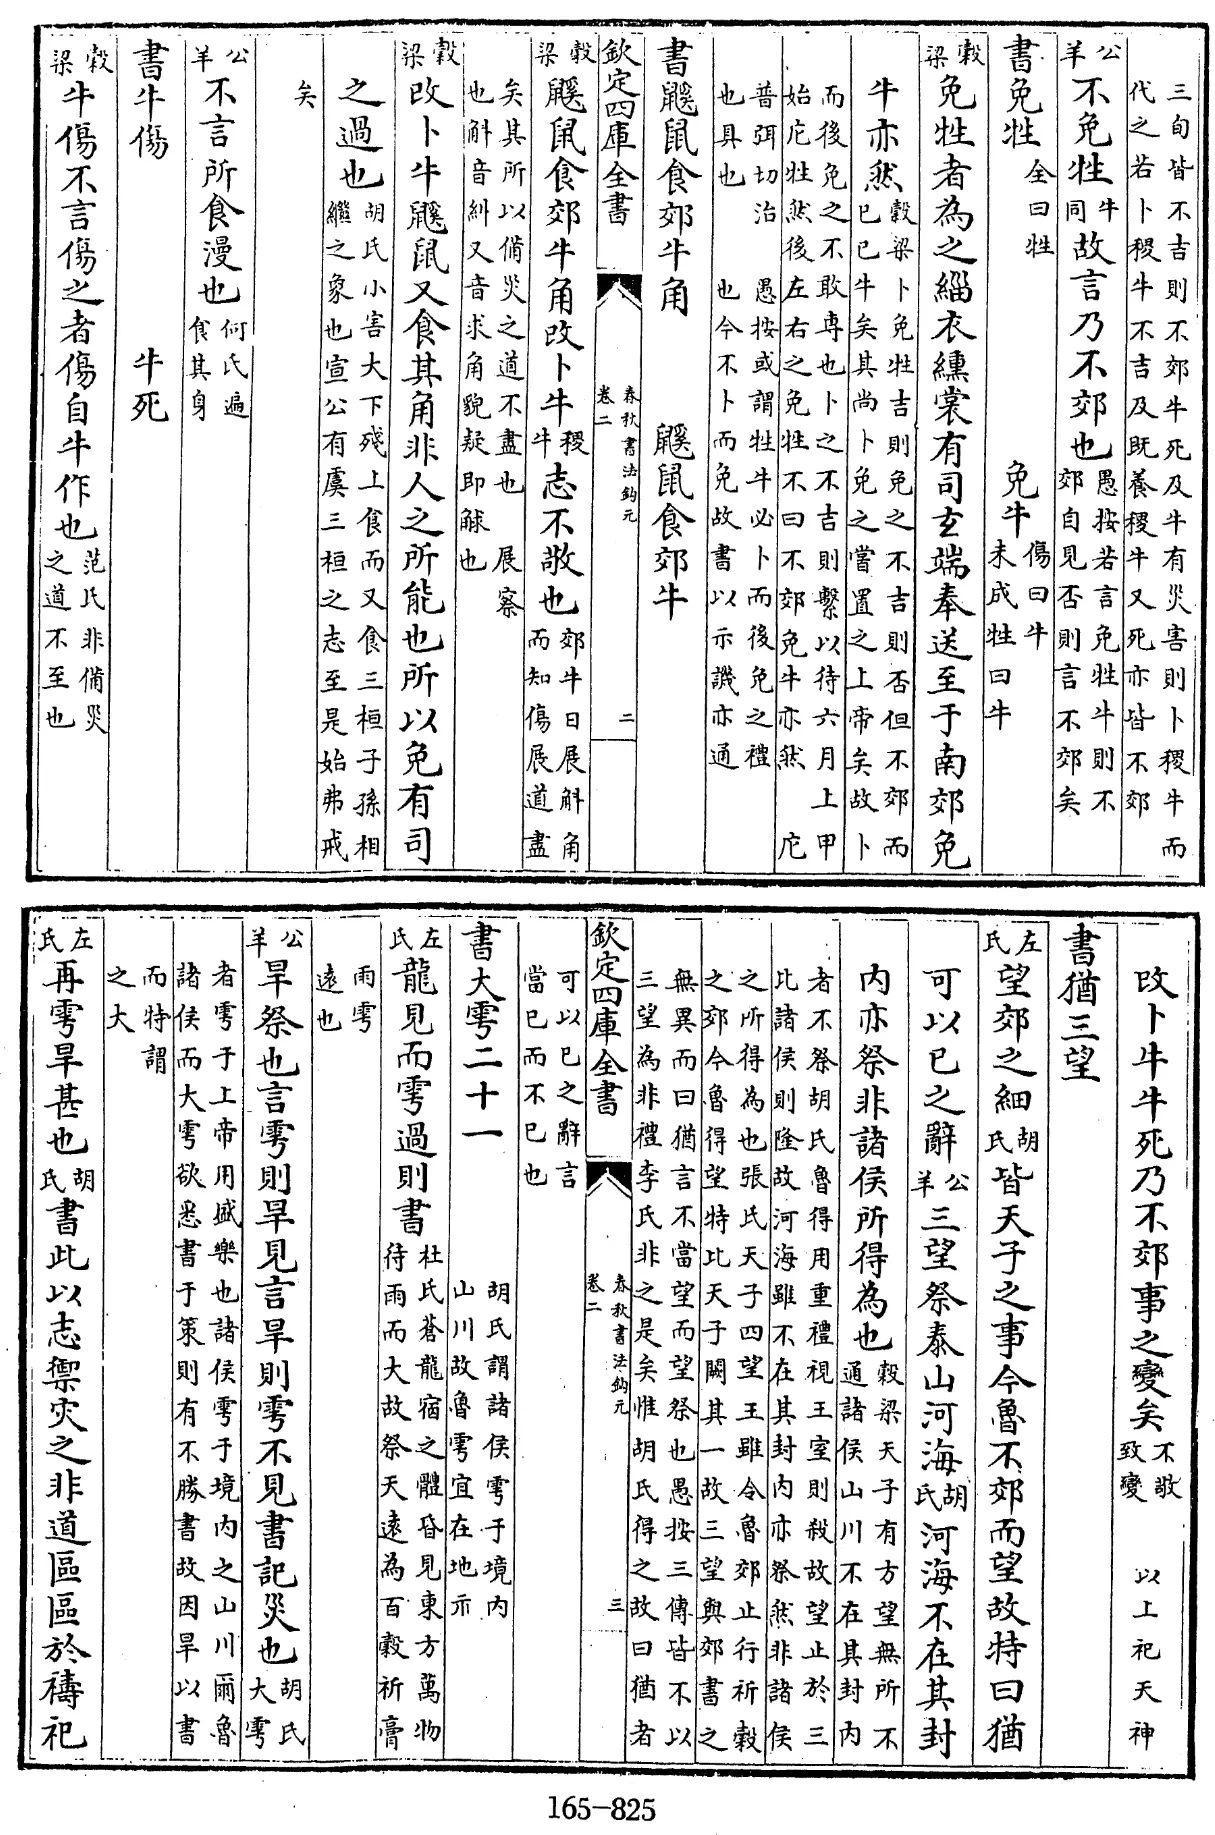 三旬皆不吉則不郊牛死及牛有災害則卜稷牛而
代之若卜稷牛不吉及既養稷牛又死亦皆不郊
公羊不免牲牛同故言乃不郊也愚按若言免牲牛則不郊自見否則言不郊矣
書免牲全曰牲 免牛傷曰牛未成牲曰牛
穀梁免牲者為之緇衣纁裳有司玄端奉送至于南郊免
牛亦然穀梁卜免牲吉則免之不吉則否但不郊而已已牛矣其尚卜免之嘗置之上帝矣故卜
而後免之不敢専也卜之不吉則繫以待六月上甲
始庀牲然後左右之免牲不曰不郊免牛亦然 庀
普弭切治也具也 愚按或謂牲牛必卜而後免之禮也今不卜而免故書以示譏亦通
書鼷鼠食郊牛角 鼷鼠食郊牛
欽定四庫全書 春秋書法鈎元 卷二 二
穀梁鼷鼠食郊牛角改卜牛稷牛志不敬也郊牛日展斛角而知傷展道盡
矣其所以備災之道不盡也 展察
也斛音糾又音求角貌疑即觩也
穀梁改卜牛鼷鼠又食其角非人之所能也所以免有司
之過也胡氏小害大下殘上食而又食三桓子孫相繼之象也宣公有虞三桓之志至是始弗戒
矣
公羊不言所食漫也何氏遍食其身
書牛傷 牛死
穀梁牛傷不言傷之者傷自牛作也范氏非備災之道不至也
改卜牛牛死乃不郊事之變矣不敬致變 以上祀天神
書猶三望
左氏望郊之細胡氏皆天子之事今魯不郊而望故特曰猶
可以已之辭公羊三望祭泰山河海胡氏河海不在其封
内亦祭非諸侯所得為也穀梁天子有方望無所不通諸侯山川不在其封内
者不祭胡氏魯得用重禮視王室則殺故望止於三
比諸侯則隆故河海雖不在其封内亦祭然非諸侯
之所得為也張氏天子四望王雖令魯郊止行祈穀
之郊今魯得望特比天子闕其一故三望與郊書之
無異而曰猶言不當望而望祭也愚按三傳皆不以
三望為非禮李氏非之是矣惟胡氏得之故曰猶者
欽定四庫全書 春秋書法鈎元 卷二 三
可以已之辭言
當已而不已也
書大雩二十一胡氏謂諸侯雩于境内山川故魯雩宜在地示
左氏龍見而雩過則書杜氏蒼龍宿之體昏見東方萬物待雨而大故祭天遠為百穀祈膏
雨雩
遠也
公羊旱祭也言雩則旱見言旱則雩不見書記災也胡氏大雩
者雩于上帝用盛樂也諸侯雩于境内之山川爾魯
諸侯而大雩欲悉書于策則有不勝書故因旱以書
而特謂
之大
左氏再雩旱甚也胡氏書此以志禦灾之非道區區於禱祀
165-825